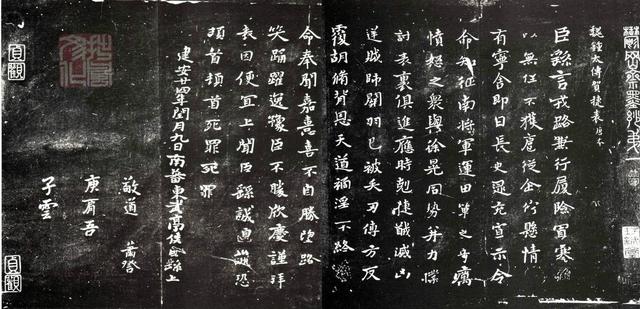 鬱岡齋墨妙第一
魏鍾太傅賀捷表唐本
臣繇言戎路兼行履險冒寒
以無任不獲扈從企佇懸情
有寧舍即日長史逯充宣示令
命知征南將軍運田單之奇厲
憤怒之衆與徐晃同勢并力撲
討表裏俱進應時剋捷馘滅凶
逆賊帥關羽已被矢刃傅方反
覆胡脩背恩天道禍淫不終
命奉聞嘉憙喜不自勝望路
笑踊躍逸豫臣不勝欣慶謹拜
表因便宜上聞臣繇誠惶誠恐
頓首頓首死罪死罪
建安廿四年閏月九日南蕃東武亭侯臣繇上
敬道
萬
庾肩吾
子雲
貞觀
貞觀